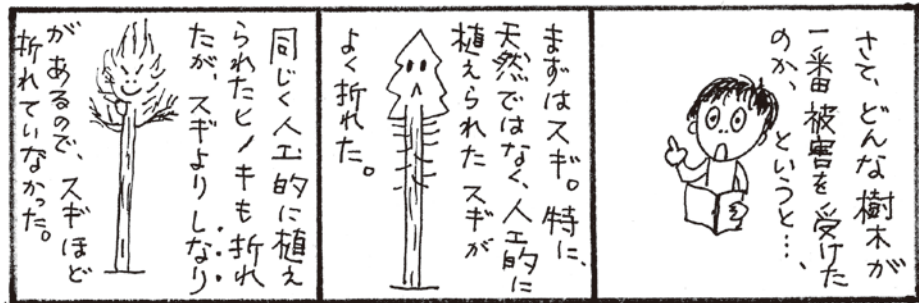 さて、どんな樹木が
一番被害を受けた
のか、というと…、
まずはスギ。特に、
天然ではなく、人工的に
植えられたスギが
よく折れた。
同じく人工的に植え
られたヒノキも折れ
たが、スギよりしなり
があるので、スギほど
折れていなかった。